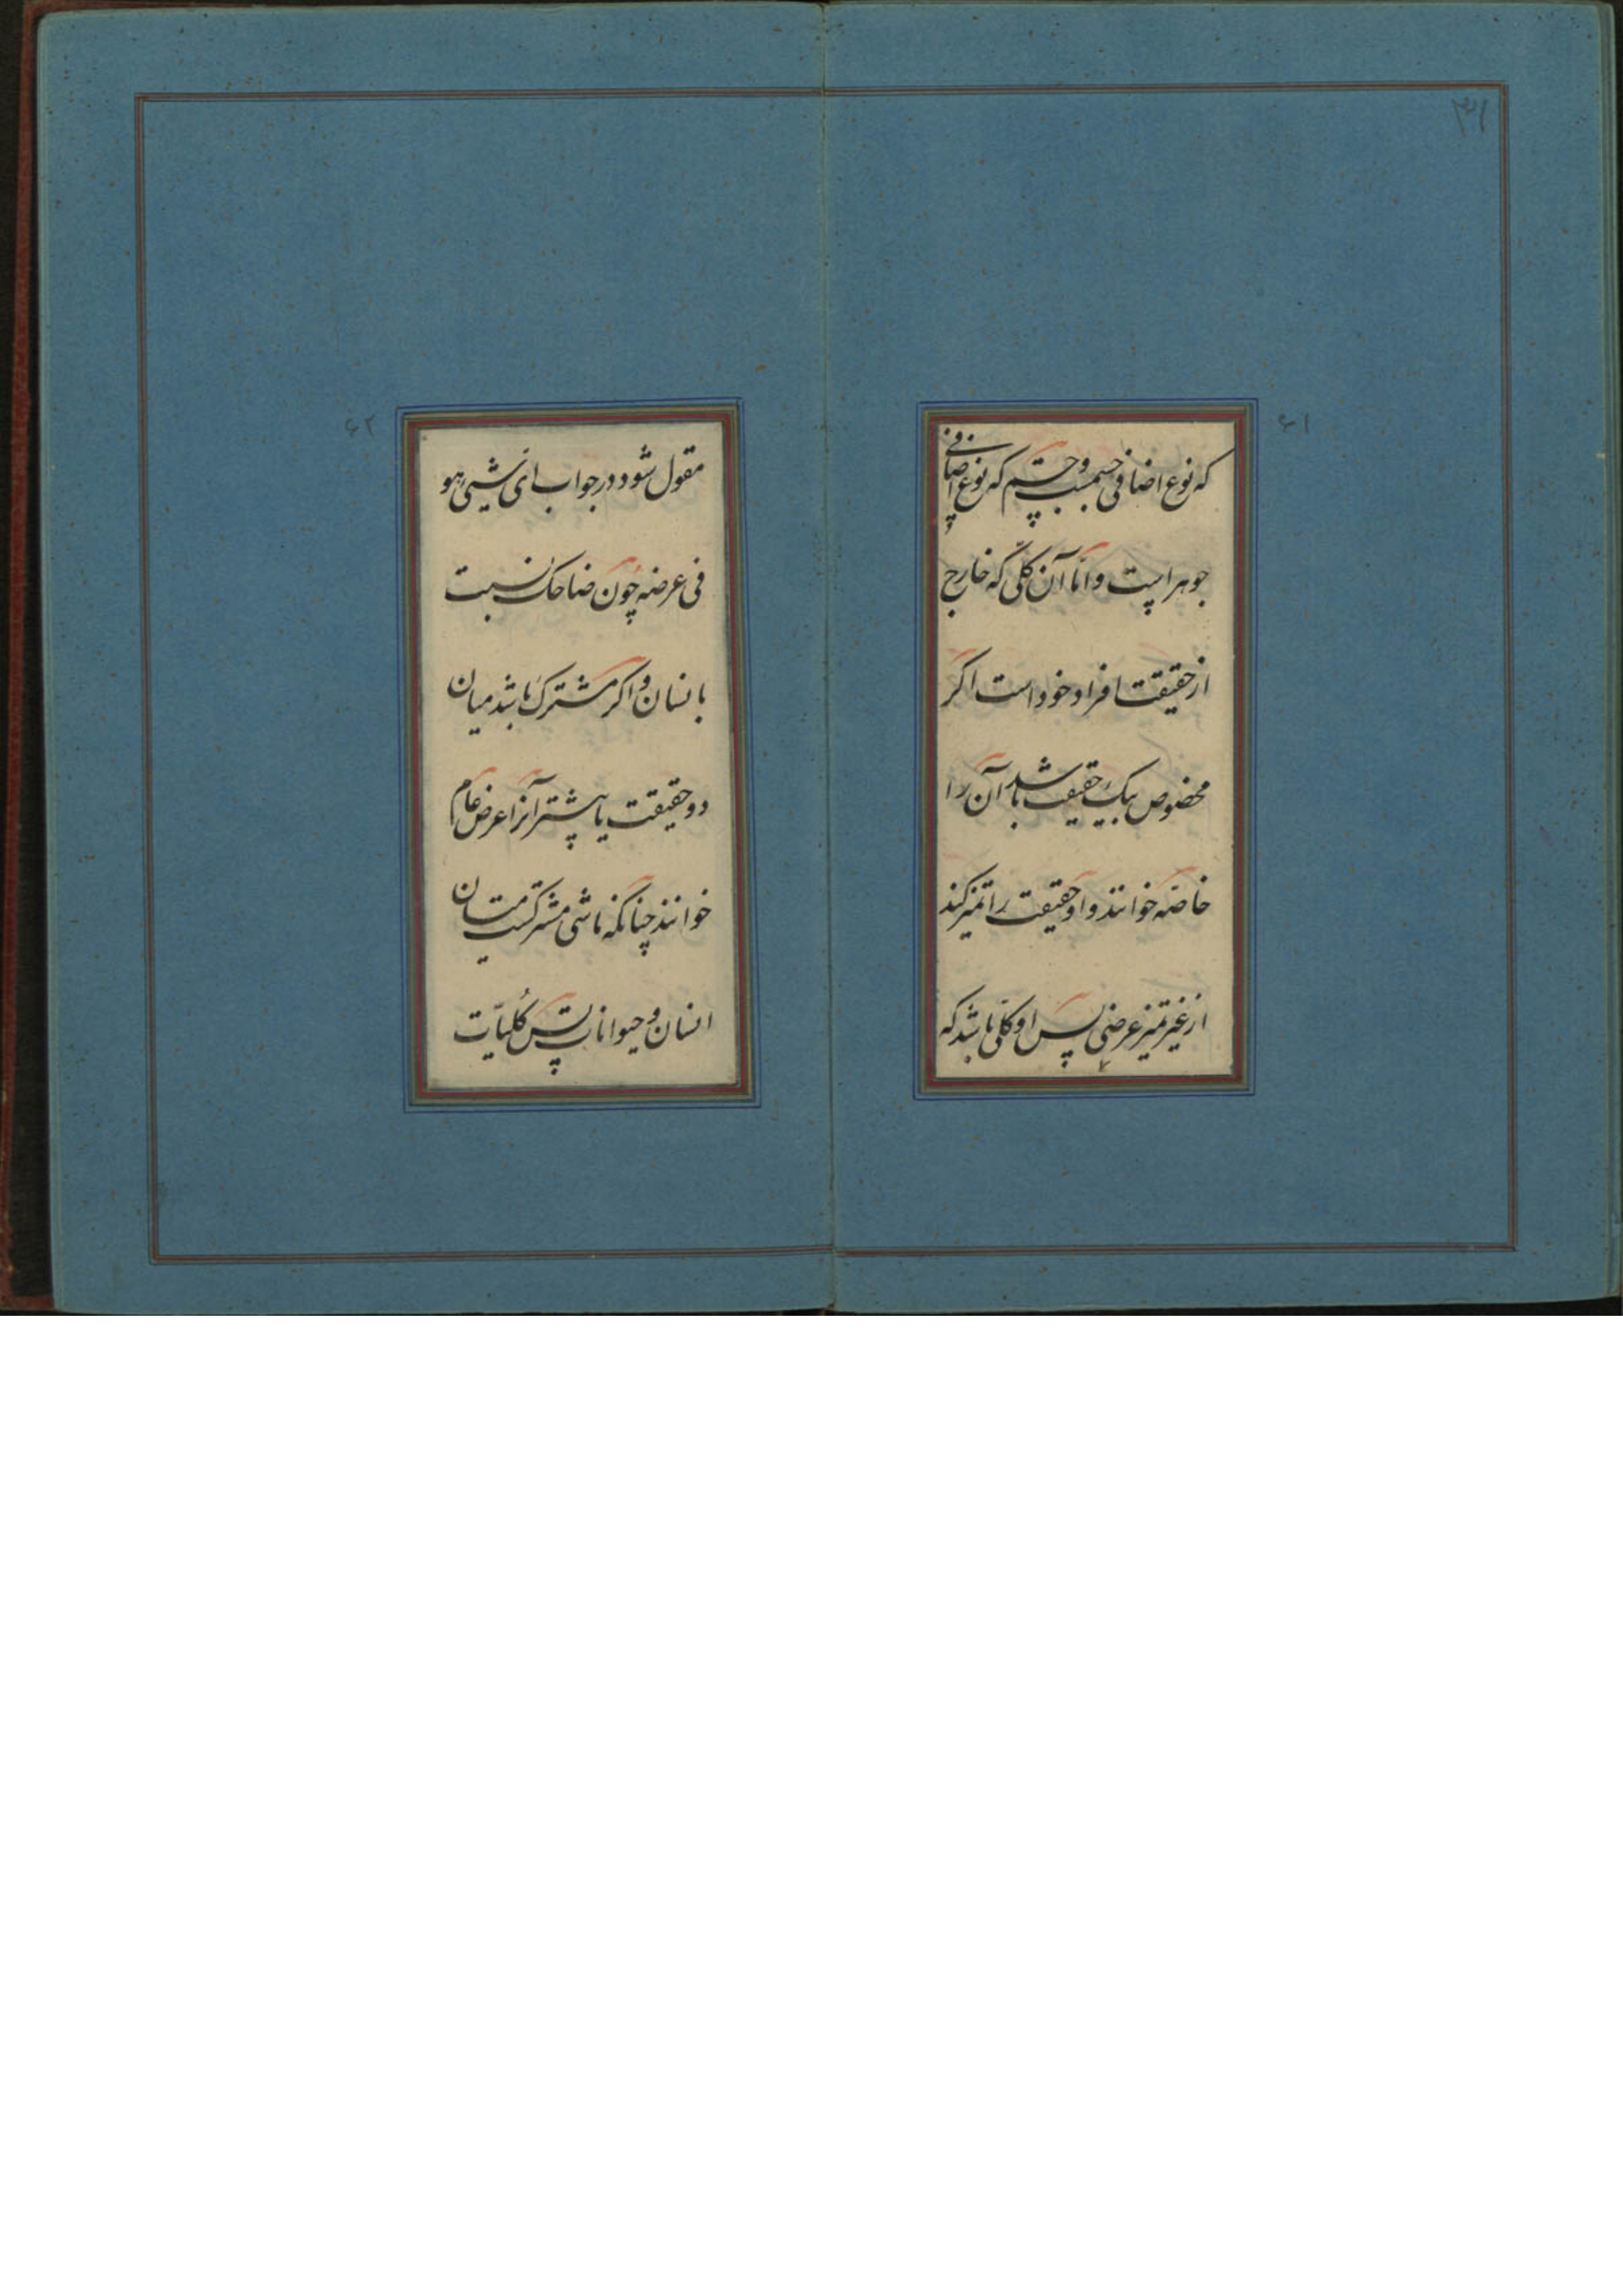 ۳۱
۶۱
که نوع اضافی جسمست و جسم که نوع اضافی
جوهر است و امّا آن کلّی که خارج
از حقیقت افراد خود است اکر
مخصوص بیک حقیقت باشد آن را
خاصّه خوانند و او حقیقت را تمیز کند
از غیر تمیز عرضی پس او کلّی باشد که
۶۲
مقول شود در جواب ایّ شیئ هو
فی عرضه چون ضاحک نسبت
بانسان و اکر مشترک باشد میان
دو حقیقت یا بیشتر آنرا عرض عام
خوانند چنانکه ماشی مشترکست میان
انسان و حیوانات پس کُلیّات